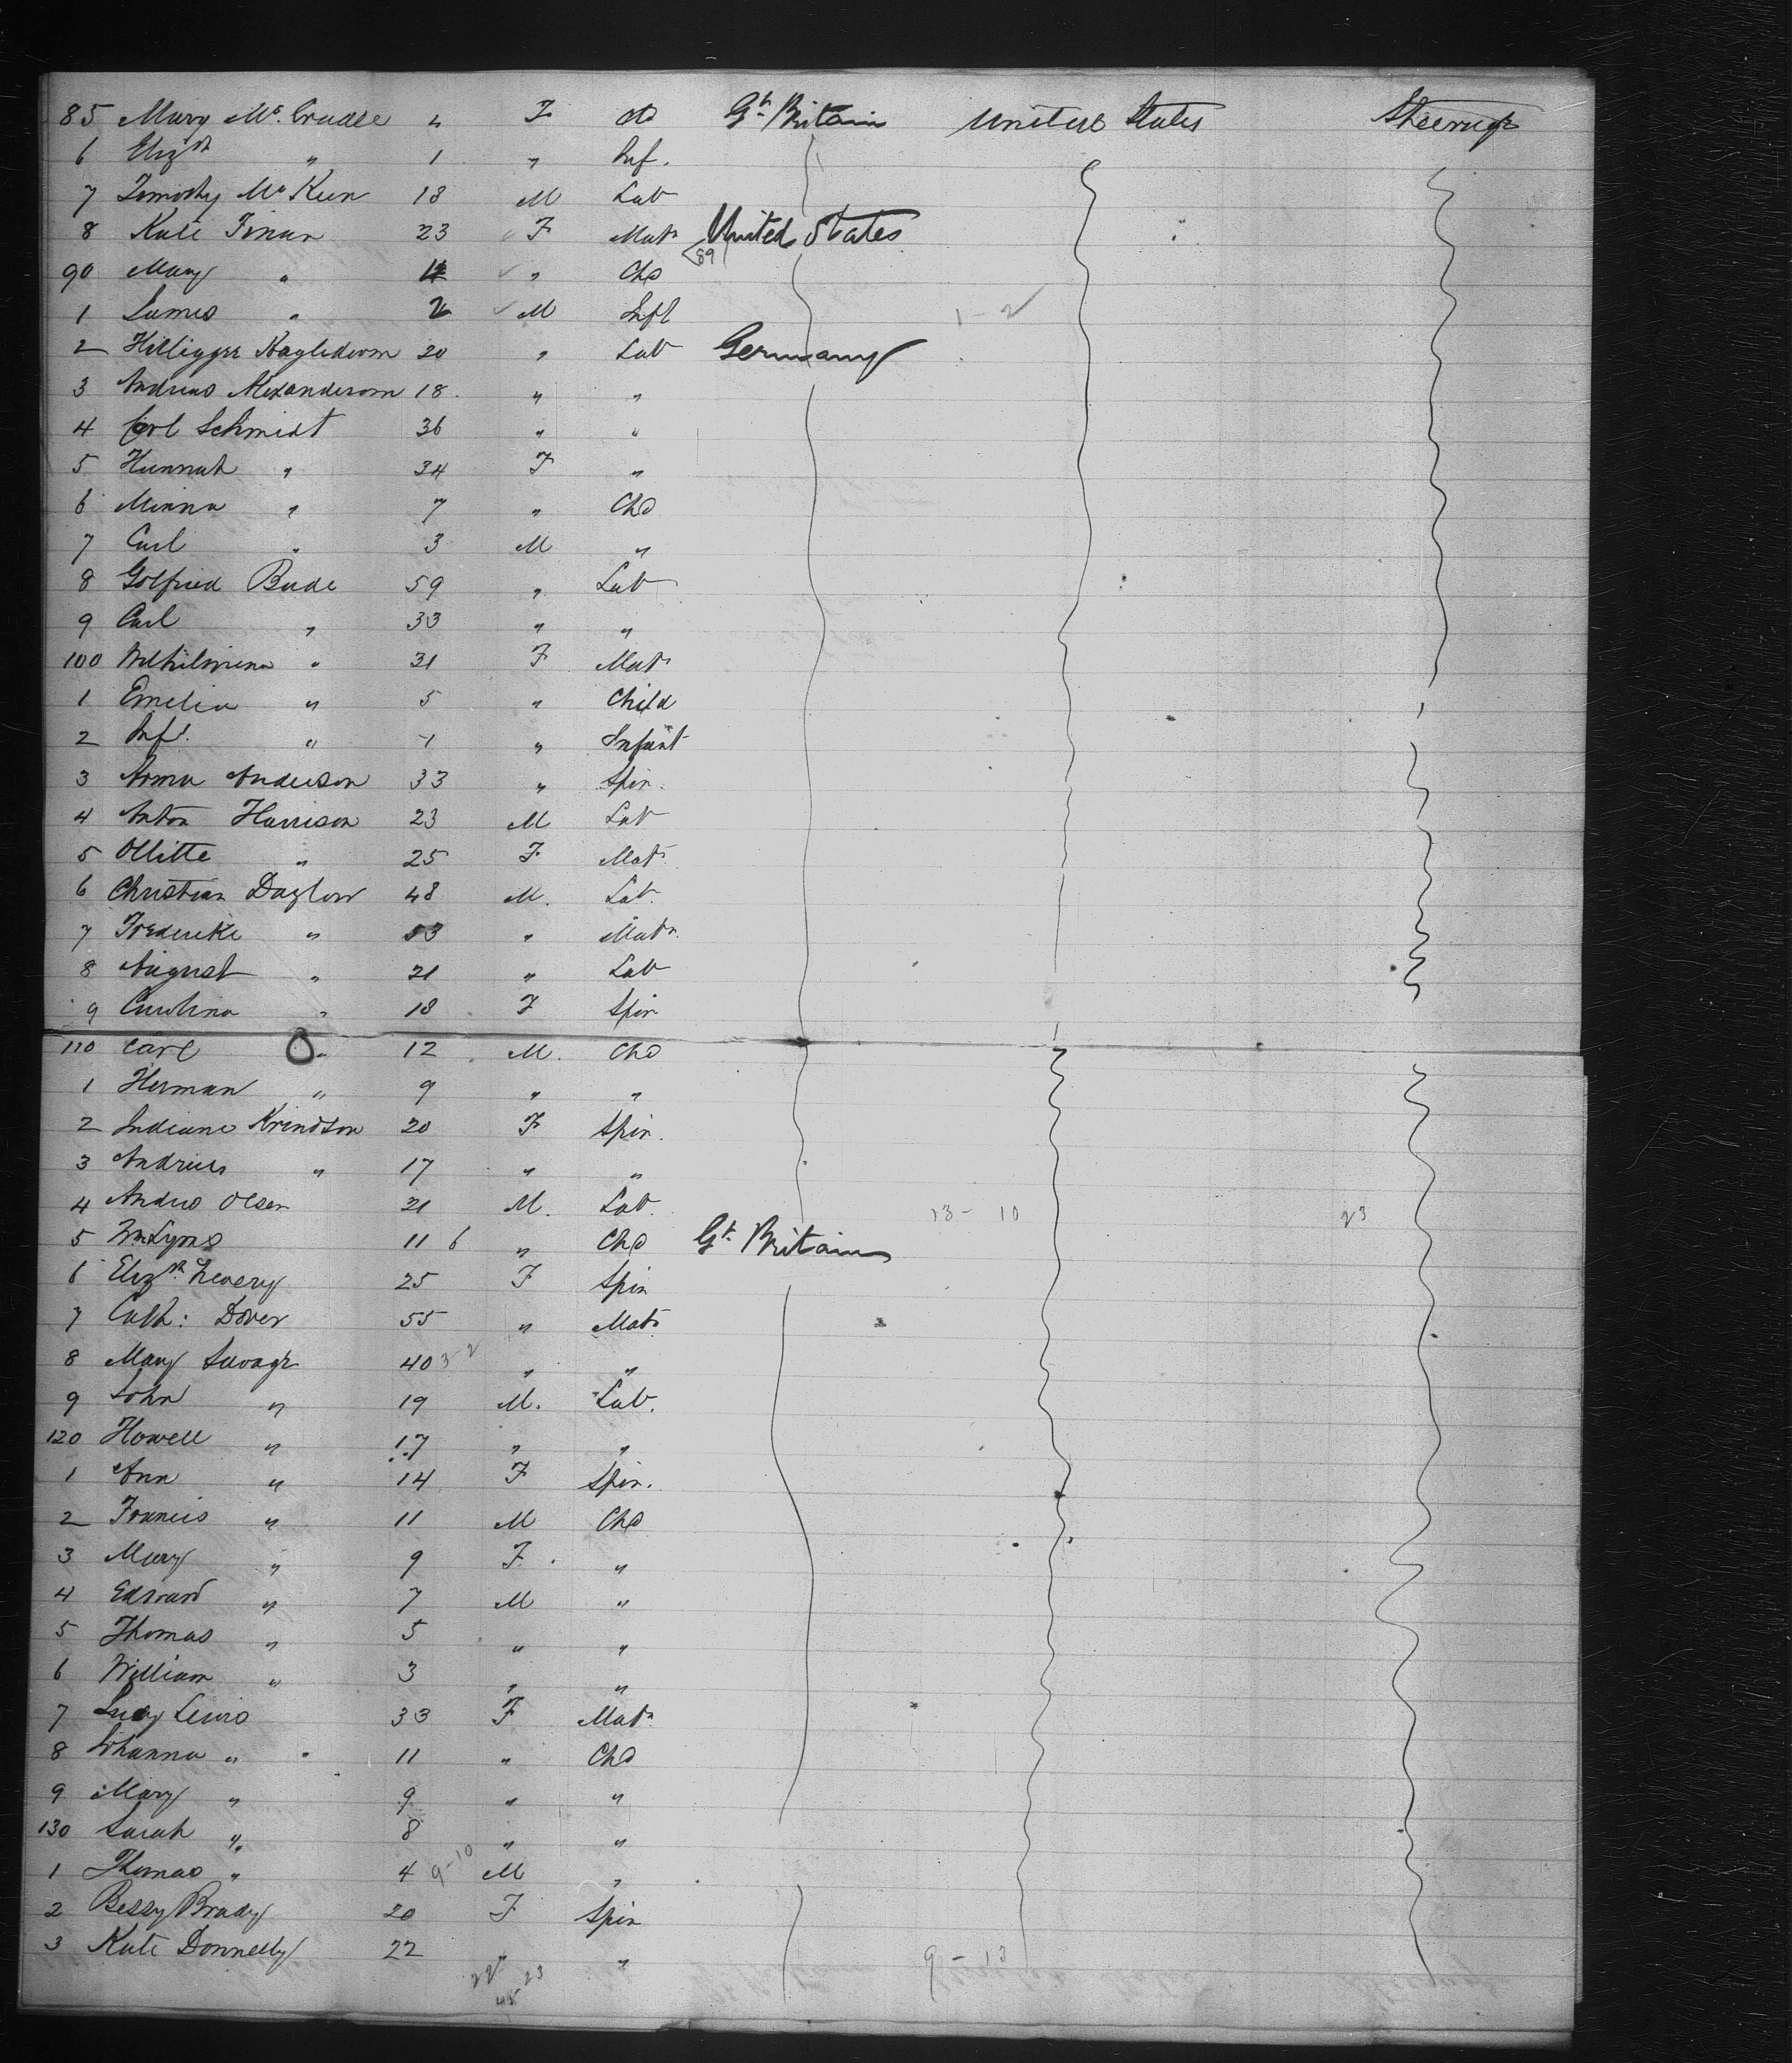 85 Mary Mc. Crudle " F do Gt. Britain United States Steerage
6 Elizth " 1 " Inf.
7 Timothy Mc Keen 18 M Lab
8 Kate Finan 23 F Matn United States
89
90 Mary " 4 " Chd
1 James " 2 M Inft 1-2
2 20 " Lab Germany
3 Andreas Alexanderson 18 " "
4 Carl Schmidt 36 " "
5 Hannah " 34 F "
6 Minna " 7 " Chd
7 Carl " 3 M "
8 Gotfried Bude 59 " Lab
9 Carl " 33 " "
100 Wilhelmina " 31 F Matn
1 Emelia " 5 " Child
2 Inft. " 1 " Infant
3 Anna Anderson 33 " Spin.
4 Anton Harrison 23 M Lab
5 Ollitte " 25 F Matn
6 Christian Daglow 48 M. Lab.
7 Frederike " 53 " Matn.
8 August " 21 " Lab
9 Carolina " 18 F Spin
110 Carl " 12 M. Chd
1 Herman " 9 " "
2 Indiane Krindson 20 F Spin.
3 Andries " 17 " "
4 Andrio Olsen 21 M. Lab. 13-10 23
5 Wm Lyons 11 6 " Chd Gt. Britain
6 Elizth. Levery 25 F Spin
7 Cath: Dover 55 " Matn
8 Mary Savage 40 3-2 " "
9 John " 19 M. Lab.
120 Howell " 17 " "
1 Ann " 14 F Spin.
2 Francis " 11 M Chd
3 Mary " 9 F. "
4 Edward " 7 M "
5 Thomas " 5 " "
6 William " 3 " "
7 Lucy Lewis 33 F Matn
8 Johanna " 11 " Chd
9 Mary " 9 " "
130 Sarah " 8 " "
1 Thomas " 4 9-10 M "
2 Bessy Brady 20 F Spin
3 Kate Donnelly 22 " " 9-13
22 23
45